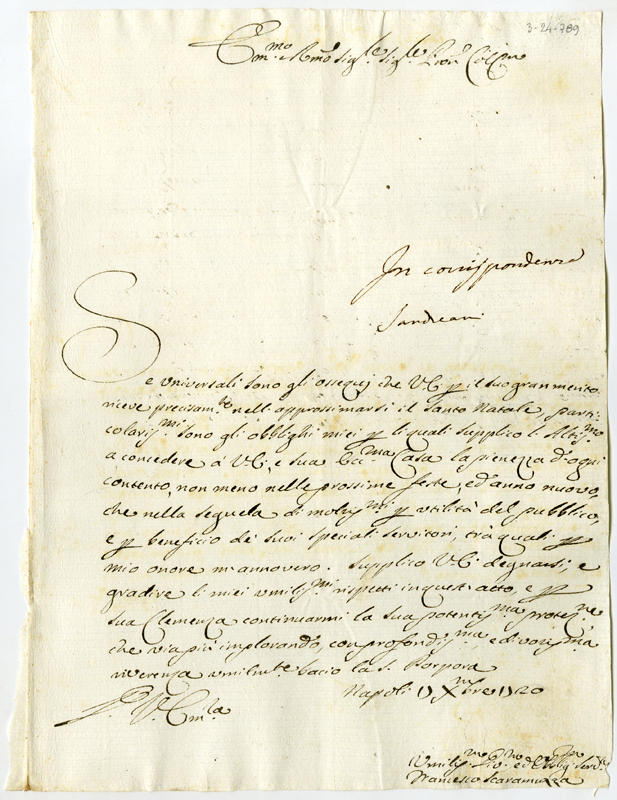 3-24-789
Em.mo Rmo Sig.re Sig.re Pron Col.mo
In corrispondenza
Se universali sono gli ossequij che V.E. p il suo gran merito
riceve precisam.te nell'approssimarsi il Santo Natale, parti:
colariss.mi sono gli obblighi miei p li quali supplico l'Altiss.mo
a concedere à V.E., e sua Ecc.ma Casa la pienezza d'ogni
contento, non meno nelle prossime feste, ed'anno nuovo,
che nella seguela di moltiss.mi p utilità del pubblico,
e p beneficio de suoi speciali servitori, trà quali p
mio onore m'annovero. Supplico V.E. degnarsi, e
gradire li miei umiliss.mi rispetti in quest'acto, e p
sua Clemenza continuarmi la sua potentiss.ma protez.ne
che via più implorando, con profondiss.ma e divotiss.ma
riverenza umilmte bacio la S. Porpora
Napoli 17 Xmbre 1720
D. V. Em.za
Umiliss.mo Div.mo ed Obblig.mo Serv.re
Francesco Scaramuzza